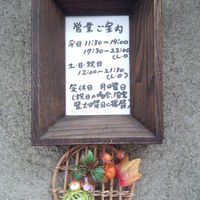 営業ご案内
平日 11:30〜14:00
17:30〜22:00
(L・O)
土・日・祝日
12:00〜21:30
(L・O)
定休日 月曜日
(祝日の場合、営業
翌火曜日に振替)